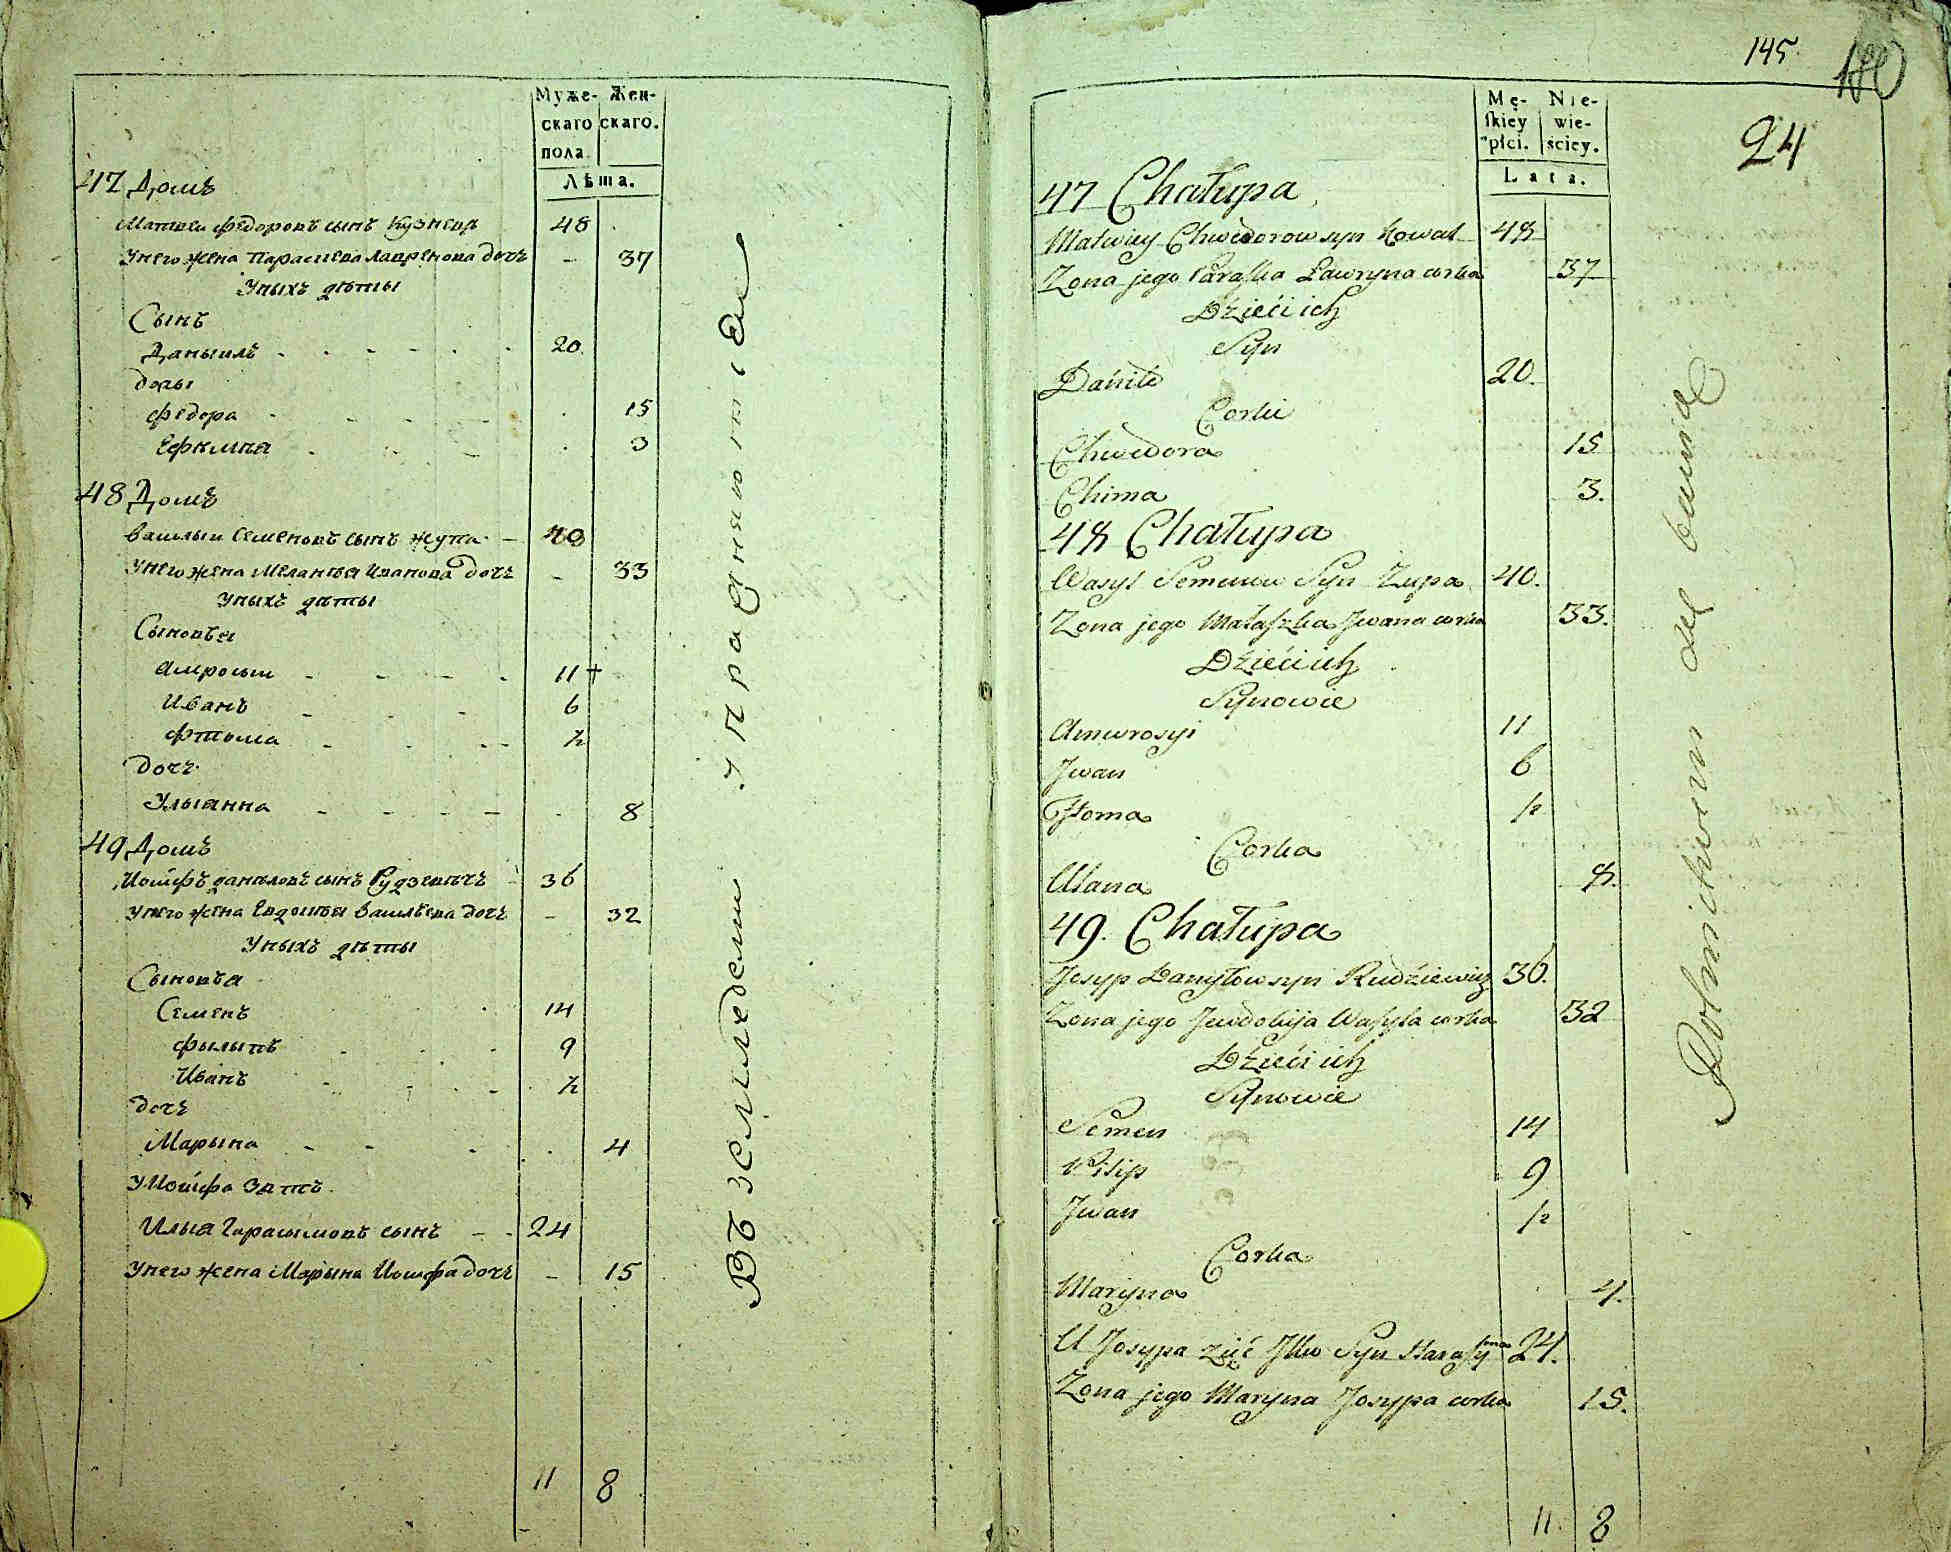 Муже- Жен-
скаго скаго.
пола.
Лѣта.
47 Домъ
Матвеи Федоровъ сынъ Кузнецъ 48
Унего жена Параскева Лавренова дочь - 37
Уныхъ дѣты
Сынъ
Данылъ 20.
дочь
Федора 15
Ефимиа 3
48 Домъ
Василыи Семеновъ сынъ Жупа 40
Унего жена Меланъя Иванова дочь - 33
Уныхъ дѣты
Сыновъя
Амросыи 11 +
Иванъ 6
Фтома ½
дочь
Улыанна 8
49 Домъ
Иосифъ даниловъ сынъ Рудзевичъ 36
Унего жена Евдокъя Василъева дочь - 32
Уныхъ дѣты
Сыновъя
Семенъ 14
Филыпъ 9
Иванъ ½
дочь
Марына 4
УИосифа Зять
Илыа Гарасымовъ сынъ 24
Унего жена Марына Иосифа дочь - 15
11 8
Въ земледелии упражняютсѧ
145
24
Mę- Nie-
skiey wie-
płci. ściey.
Lata.
47 Chałupa
Matwiey Chwedorow syn Kowal 48
Zona jego Paraska Ławryna corka 37
Dzieći ich
Syn
Daniło 20.
Corki
Chwedora 15
Chima 3.
48 Chałupa
Wasyl Semenow Syn Zupa 40.
Zona jego Małaszka Jwana corka 33.
Dzieći ich
Synowie
Amwrosyi 11
Jwan 6
Htoma ½
Corka
Ulana 8.
49. Chałupa
Josyp Danyłow syn Rudziewicz 36.
Zona jego Jewdokija Wasyla corka 32
Dzieći ich
Synowie
Semen 14
Pilip 9
Jwan ½
Corka
Maryna 4.
U Josypa zięć Jlko Syn Harasyma 24.
Zona jego Maryna Josypa corka 15.
11. 8
Rolnictwem się bawią